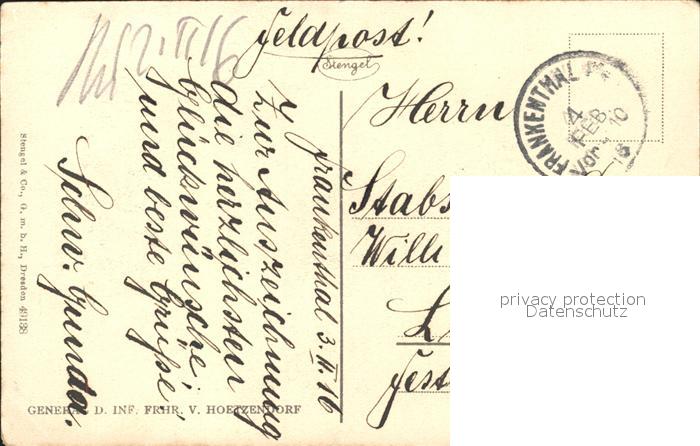 Feldpost!
Stengel
Frankenthal 3.II.16
Zur Auszeichnung
die herzlichsten
Glückwünsche
und beste Grüße,
Schw. Gunda.
Herrn
Stabs
Willi
L
Fest
FRANKENTHAL
4
FEB.
Vor.
10
16
privacy protection
Datenschutz
Stengel & Co., G. m. b. H., Dresden 49188
GENERAL D. INF. FRHR. V. HOETZENDORF